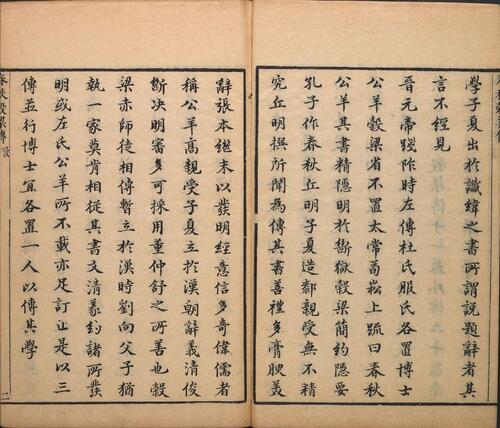 學子夏出於讖緯之書所謂說題辭者其
言不經見
晉元帝踐阼時左傳杜氏服氏各置博士
公羊穀梁省不置太常荀崧上䟽曰春秋
公羊其書精隱明於斷獄穀梁簡約隱要
孔子作春秋丘明子夏造鄰親受無不精
究丘明撰所聞為傳其書善禮多膏腴美
辭張本繼末以發明經意信多奇偉儒者
稱公羊高親受子夏立於漢朝辭義清俊
斷決明審多可採用董仲舒之所善也穀
梁赤師徒相傳暫立於漢時劉向父子猶
執一家莫肯相從其書文清義約諸所發
明或左氏公羊所不載亦足訂正是以三
傳並行博士宜各置一人以傳其學
春秋穀梁傳 攷
二